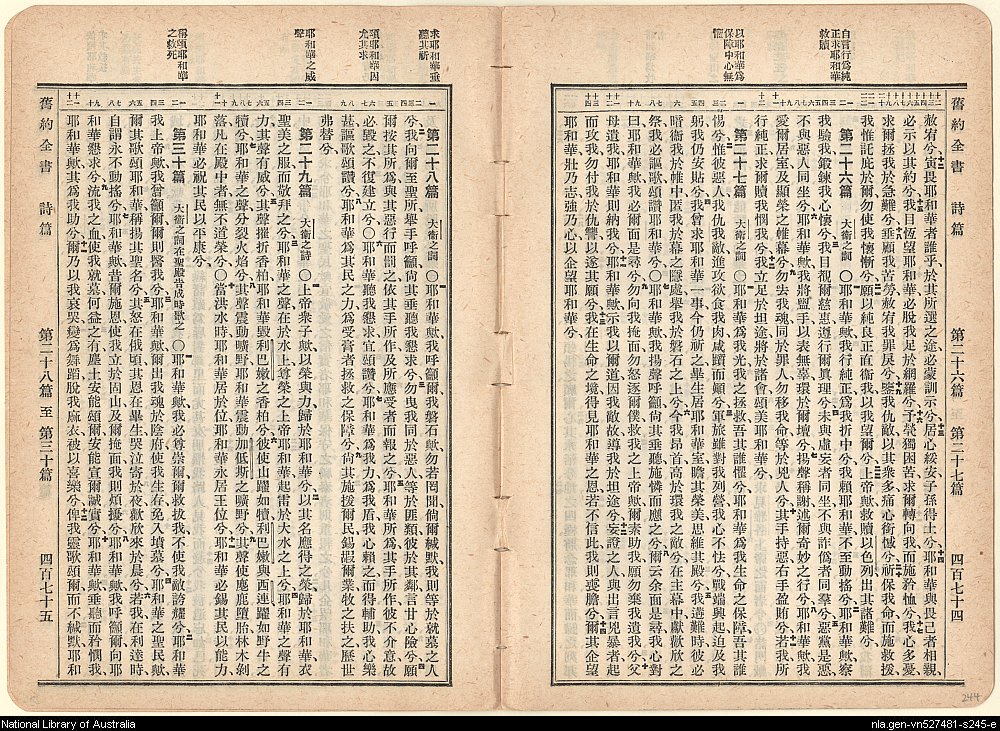 舊約全書 詩篇 第二十六篇 至 第二十七篇 四百七十四
自言行爲純
正求耶和華
救贖
以耶和華爲
保障中心無
懼
赦宥兮寅畏耶和華者誰乎於其所選之途必蒙訓示兮居心綏安子孫得土兮耶和華與畏己者相親
必示以其約兮我目恆望耶和華必脫我足於網羅兮予煢獨困苦求爾轉向我而施矜恤兮我心多憂
求爾拯我於急難兮垂顧我苦勞赦宥我罪戾兮鑒我仇敵以其衆多痛心銜憾兮祈保我命而施救援
我惟託庇於爾勿使我懷慚兮願以純良正直衞我以我望爾兮上帝歟救贖以色列出其諸難兮
第二十六篇 大衞之詞 〇耶和華歟我行純正爲我折中兮我賴耶和華不至動搖兮耶和華歟察
我驗我鍛鍊我心懷兮我目覩爾慈惠遵行爾眞理兮未與虛妄者同坐不與詐僞者同羣兮惡黨是惡
不與惡人同坐兮耶和華歟我將盥手以表無辜環於爾壇兮揚聲稱謝述爾奇妙之行兮耶和華歟我
愛爾居室及顯榮之帷幕兮勿去我魂同於罪人勿移我命等於兇人兮其手持惡右手盈賄兮若我所
行純正求爾贖我憫我兮我立足於坦途將於諸會頌美耶和華兮
第二十七篇 大衞之詞 〇耶和華爲我光我之拯救吾其誰懼兮耶和華爲我生命之保障吾其誰
惕兮惟彼惡人我仇我敵進攻欲食我肉咸躓而顚兮軍旅雖對我列營我心不怯兮戰端興起迫及我
躬我仍安貼兮我曾求耶和華一事今仍祈之畢生居耶和華室瞻其榮美思維其殿兮我遘難時彼必
暗藏我於帷中匿我於幕之隱處舉我於磐石之上兮今我昂首高於環我之敵兮在主幕中獻歡欣之
祭我必謳歌頌讚耶和華兮耶和華歟我揚聲呼籲尚其垂聽施憐而應之兮爾云余面是尋我心對
曰耶和華歟我必爾面是尋兮勿向我掩面勿怒逐爾僕救我之上帝歟爾素助我願勿棄我遺我兮父
母遺我耶和華則納我兮耶和華歟示我爾道因我敵故導我於坦途兮妄證之人與出言兇暴者起
而攻我我勿付我於仇讐以遂其願兮我在生命之境得見耶和華之恩若不信此我則喪膽兮爾其企望
耶和華壯乃志強乃心以企望耶和華兮
求耶和華垂
聽其祈
頌耶和華因
允其求
耶和華之威
聲
稱頌耶和華
之救死
第二十八篇 大衞之詞 〇耶和華歟我呼籲爾我磐石歟勿若罔聞倘爾緘默我則等於就墓之人
兮我向爾至聖所舉手呼籲尚其垂聽我懇求兮勿曳我同於惡人等於匪類彼於其鄰言甘心險兮願
爾按其所爲與其惡行而罰之依其手所作及所應受者而報之兮耶和華所爲其手所作彼不介意故
必毀之不復建立兮〇耶和華聽我懇求宜頌讚兮耶和華爲我力爲我盾我心賴之而得輔助我心樂
甚謳歌頌讚兮耶和華爲其民之力爲受膏者拯救之保障兮尚其施援爾民錫嘏爾業牧之扶之歷世
弗替兮
第二十九篇 大衞之詩 〇上帝衆子歟以榮與力歸於耶和華兮以其名應得之榮歸於耶和華衣
聖美之服而敬拜之兮耶和華之聲在於水上尊榮之上帝耶和華起雷於大水之上兮耶和華之聲有
力其聲有威兮其聲摧折香柏耶和華毀利巴嫩之香柏兮彼使山躍如犢利巴嫩與西連躍如野牛之
犢兮耶和華之聲分裂火焰兮其聲震動曠野耶和華震動加低斯之曠野兮其聲使麀鹿墮胎林木剝
落凡在殿中者無不道榮兮〇當洪水時耶和華居於位耶和華永居王位兮耶和華必錫其民以能力
耶和華必祝其民以平康兮
第三十篇 大衞之詞在聖殿告成時歌之 〇耶和華歟我必尊崇爾爾救拔我不使我敵誇耀兮耶和華
我上帝歟我曾籲爾爾則醫我兮耶和華歟爾出我魂於陰府使我生存免入墳墓兮耶和華之聖民歟
爾其歌頌耶和華稱揚其聖名兮其怒在俄頃其恩在畢生哭泣寄於夜歡欣來於晨兮若我在利達時
自謂永不動搖兮耶和華歟昔爾施恩使我立於固山及爾掩面我則煩擾兮耶和華歟我呼籲爾向耶
和華懇求兮流我之血使我就墓何益之有塵土安能頌爾安能宣爾誠實兮耶和華歟垂聽而矜憫我
耶和華歟其爲我助兮爾乃以我哀哭變爲舞蹈脫我麻衣被以喜樂兮俾我靈歌頌爾而不緘默耶和
舊約全書 詩篇 第二十八篇 至 第三十篇 四百七十五
244
National Library of Australia
nla.gen-vn527481-s245-e